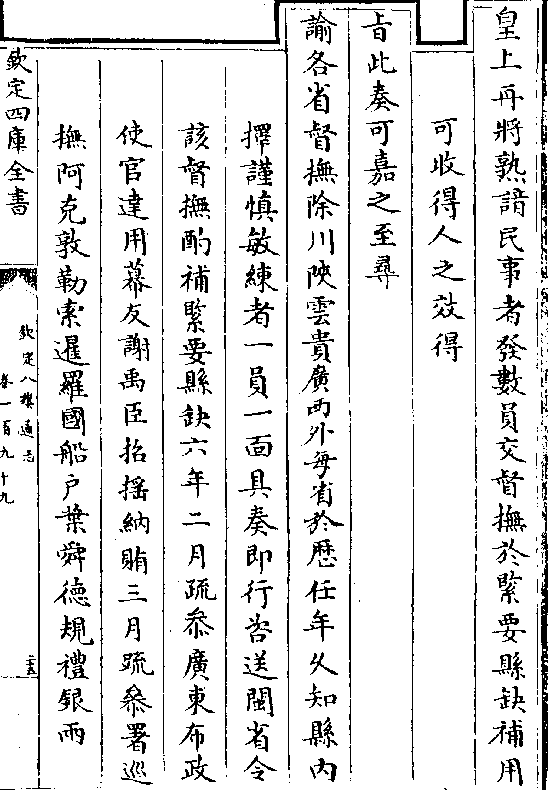 皇上再將熟諳民事者發數員交督撫於緊要縣缺補用
可收得人之效得
旨此奏可嘉之至尋
諭各省督撫除川陜雲貴廣西外每省於歴任年久知縣内
擇謹慎敏練者一員一面具奏即行咨送閩省令
該督撫酌補緊要縣缺六年二月疏叅廣東布政
使官達用幕友謝禹臣招揺納賄三月疏叅署廵
撫阿克敦勒索暹羅國船户葉舜德規禮銀兩
欽定四庫全書
欽定八旗通志
卷一百九十九
二十五